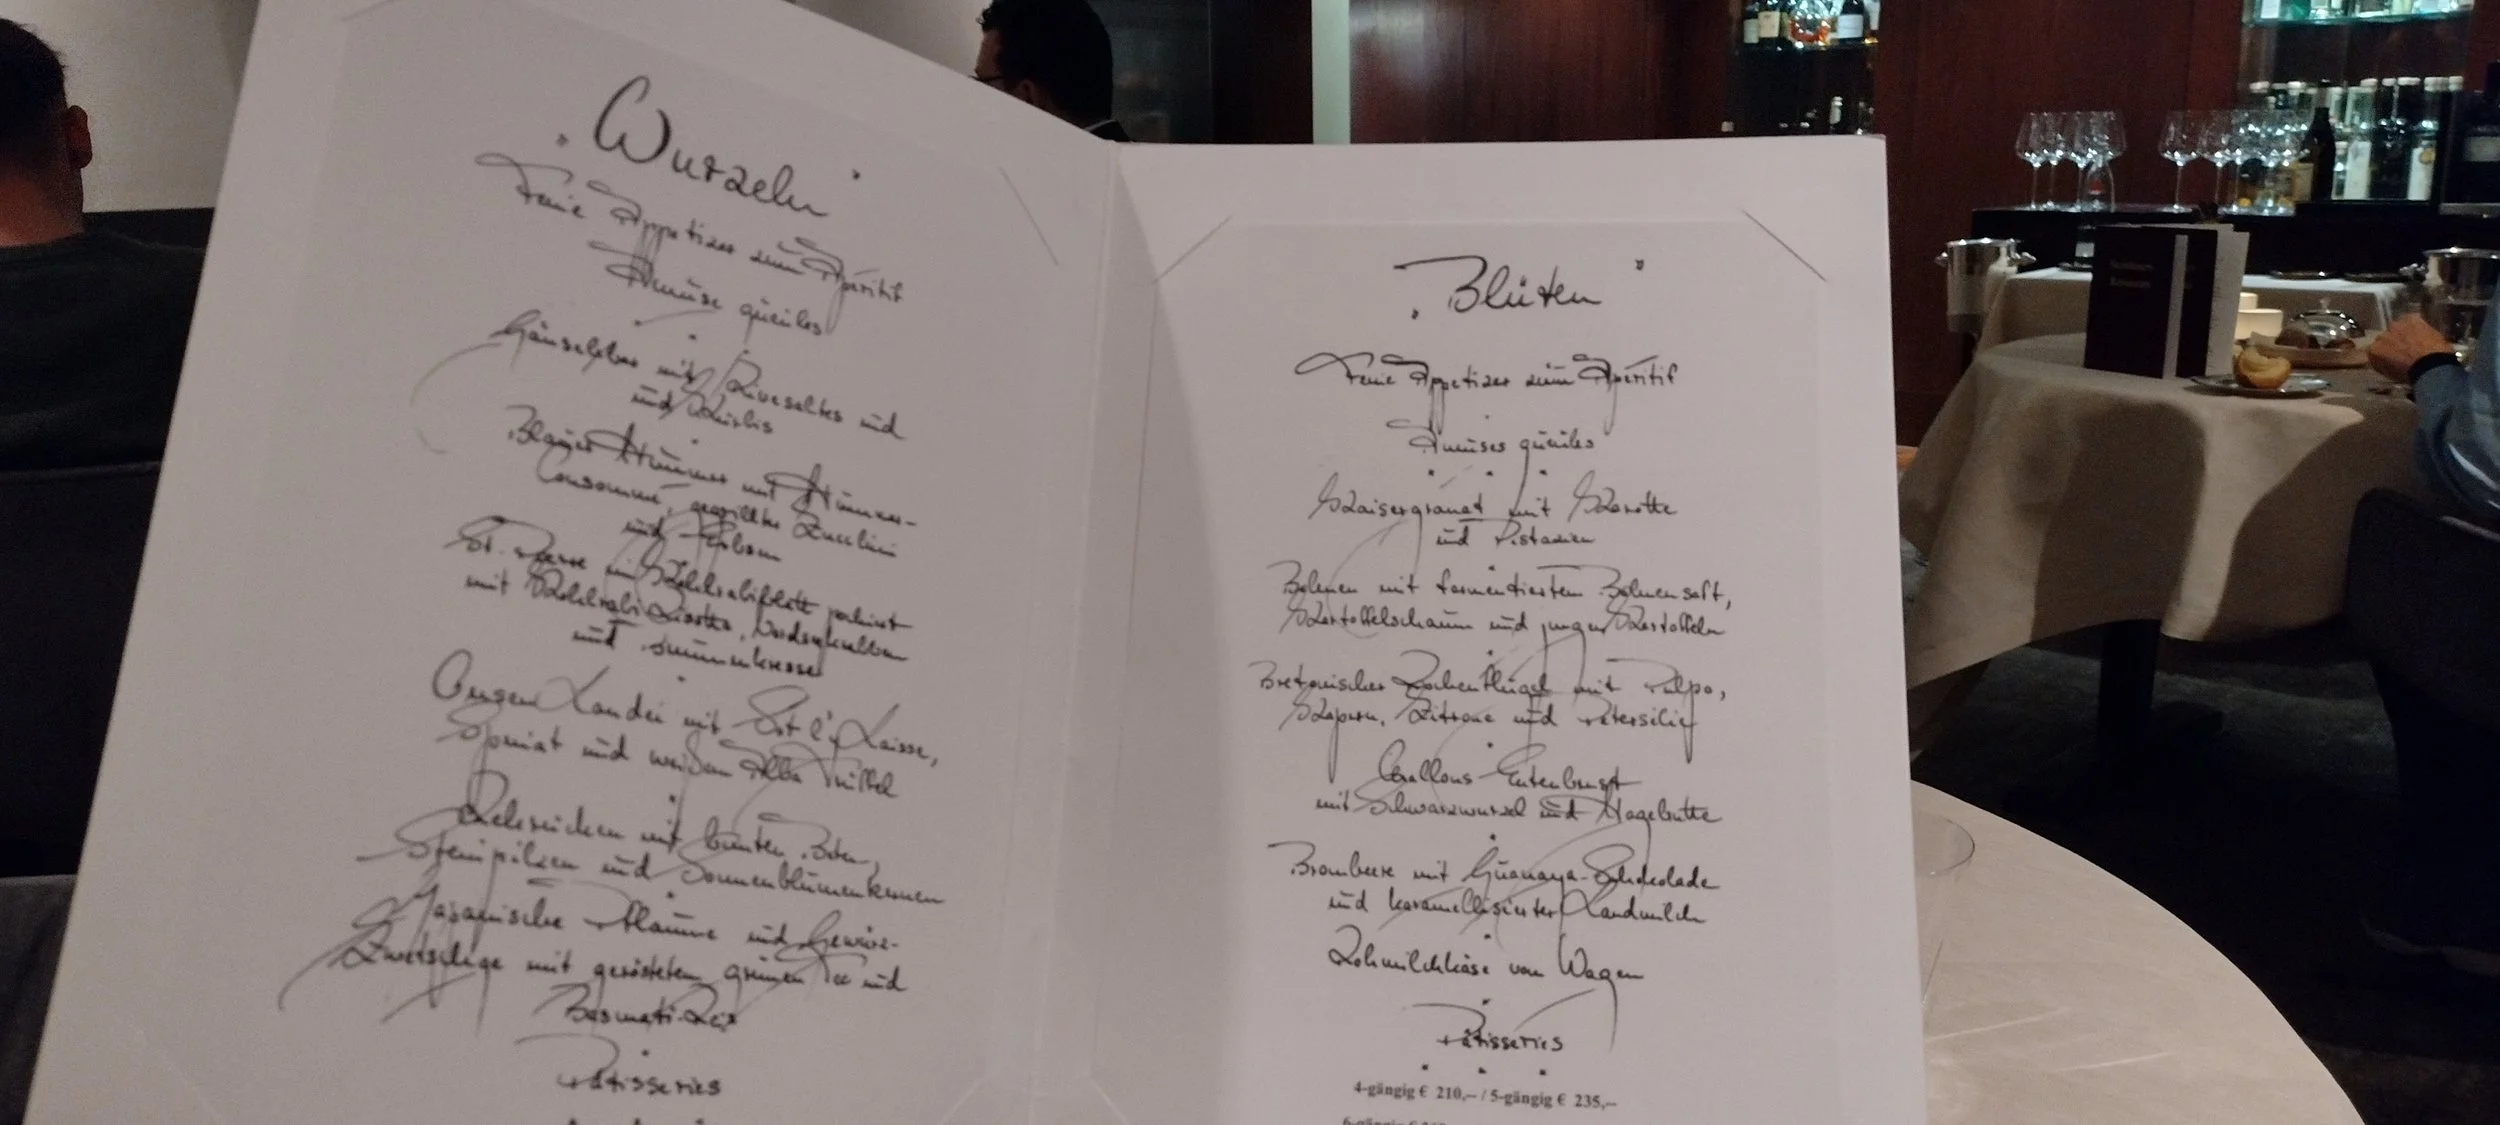 „Wurzeln"
Feine Appetizer zum Apéritif
Amuse gueules
Gänseleber mit Rivesaltes und
und Kürbis
Blauer Hummer mit Hummer-
Consommé, gegrillter Zucchini
und
St. Pierre im Kohlrabiblatt pochiert
mit Kohlrabi Risotto, Nordseekrabben
und Brunnenkresse
Landei mit
Spinat und weißem Alba Trüffel
Rehrücken mit bunten Beten,
Steinpilzen und Sonnenblumenkernen
Japanische Pflaume und Gewürz-
Zwetschge mit geröstetem grünen Tee und
Basmati-Reis
Pâtisseries
„Blüten"
Feine Appetizer zum Apéritif
Amuses gueules
Kaisergranat mit Karotte
und Pistazien
Bohnen mit fermentiertem Bohnensaft,
Kartoffelschaum und jungen Kartoffeln
Bretonischer Rochenflügel mit Pulpo,
Kapern, Zitrone und Petersilie
Challans-Entenbrust
mit Schwarzwurzel und Hagebutte
Brombeere mit Guanaja-Schokolade
und karamellisierter Landmilch
Rohmilchkäse vom Wagen
Pâtisseries
4-gängig € 210,-- / 5-gängig € 235,--